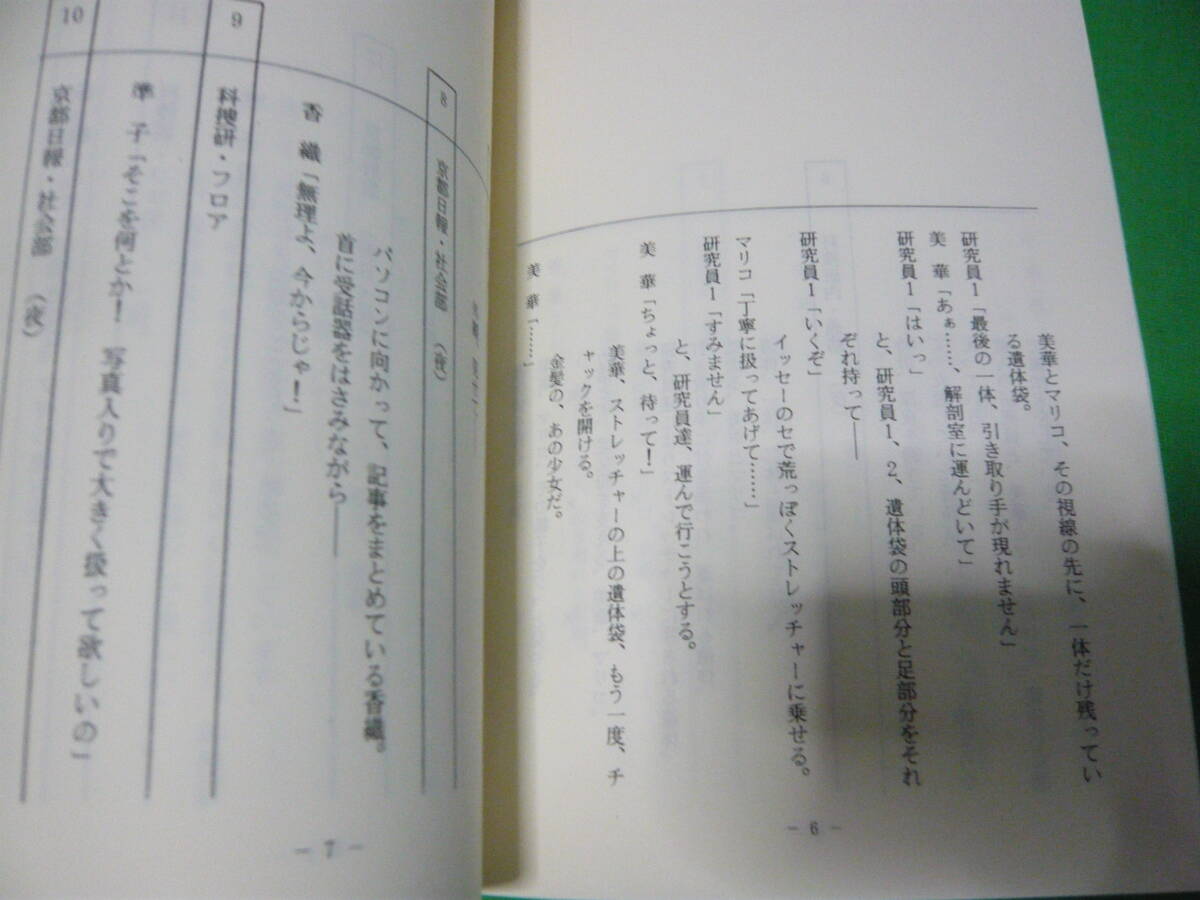 美華とマリコ、その視線の先に、一体だけ残ってい
る遺体袋。
研究員1「最後の一体、引き取り手が現れません」
美　華「あぁ……、解剖室に運んどいて」
研究員1「はいっ」
と、研究員1、2、遺体袋の頭部分と足部分をそれ
ぞれ持って――
研究員1「いくぞ」
イッセーのセで荒っぽくストレッチャーに乗せる。
マリコ「丁寧に扱ってあげて……」
研究員1「すみません」
と、研究員達、運んで行こうとする。
美　華「ちょっと、待って！」
美華、ストレッチャーの上の遺体袋、もう一度、チ
ャックを開ける。
金髪の、あの少女だ。
美　華「……」
－ 6 －
8　京都日報・社会部　（夜）
パソコンに向かって、記事をまとめている香織。
首に受話器をはさみながら――
香　織「無理よ、今からじゃ！」
9　科捜研・フロア
準　子「そこを何とか！　写真入りで大きく扱って欲しいの」
10　京都日報・社会部　（夜）
－ 7 －